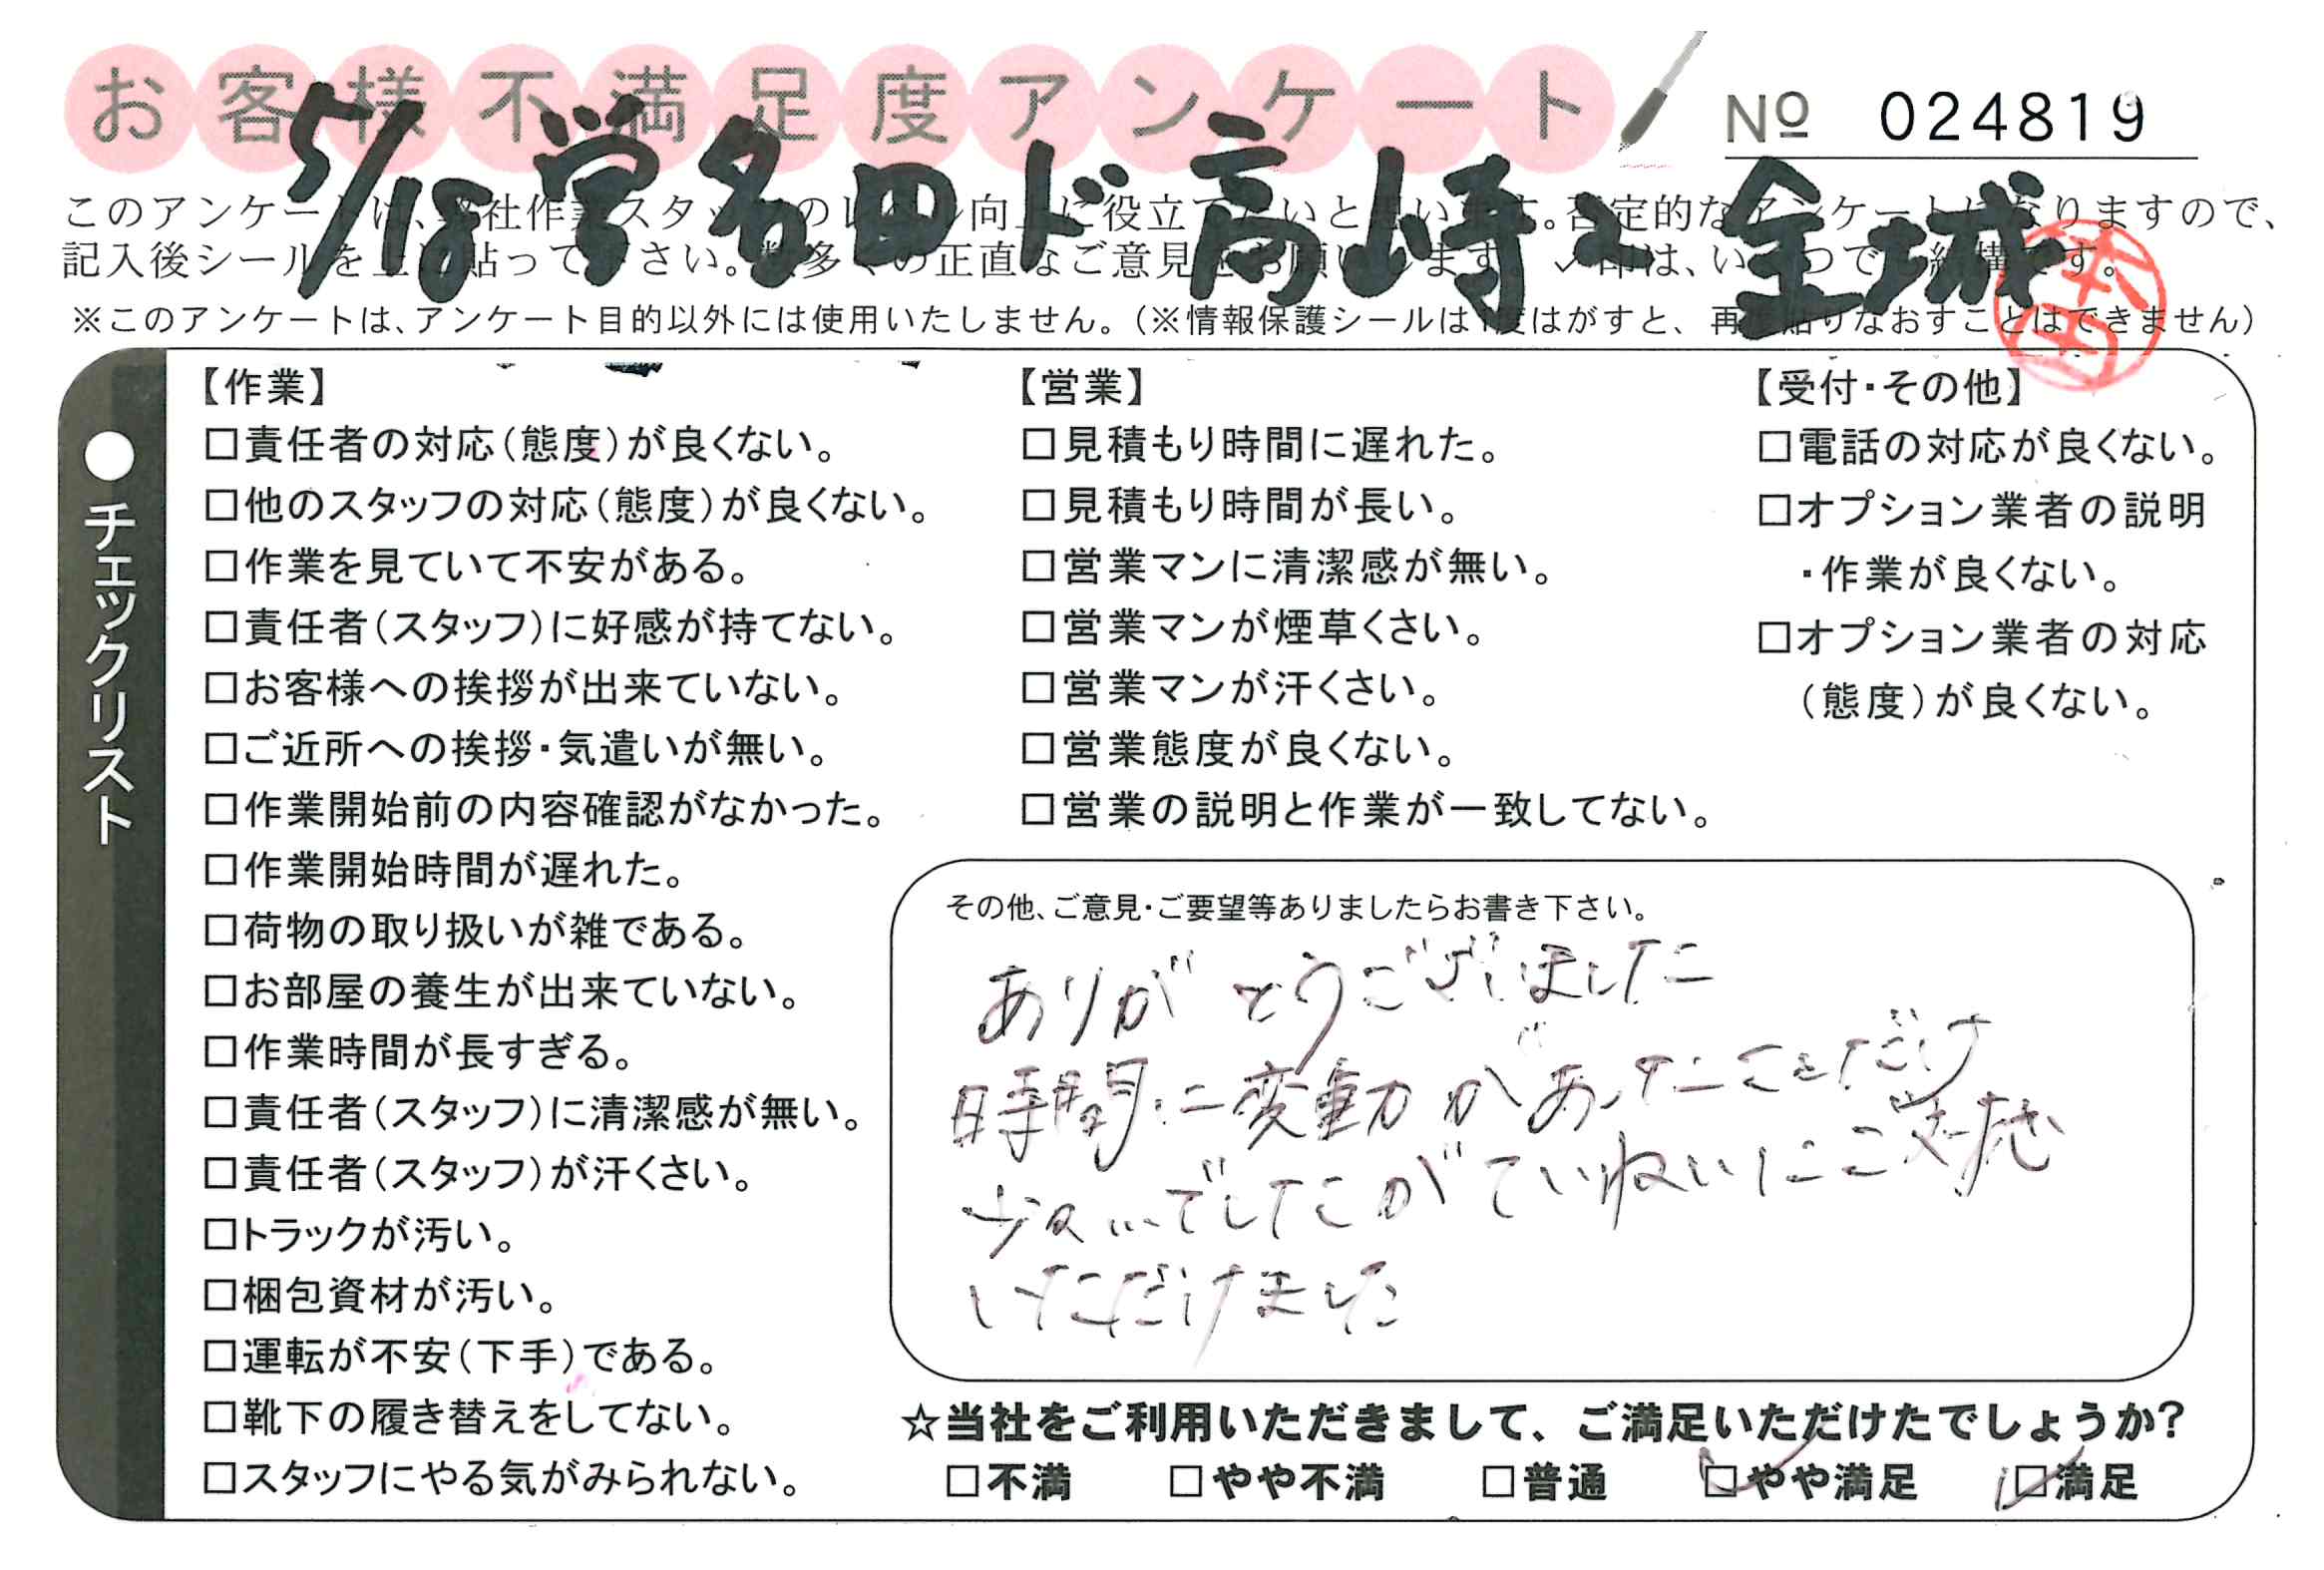 お客様不満足度アンケート
№ 024819
5/18 学 名田ド 高崎2 金城
本田
このアンケートは、弊社作業スタッフのレベル向上に役立てたいと思います。否定的なアンケートになりますので、
記入後シールを上に貼って下さい。数多くの正直なご意見をお願いします。✓印は、いくつでも結構です。
※このアンケートは、アンケート目的以外には使用いたしません。(※情報保護シールは1度はがすと、再度貼りなおすことはできません)
●チェックリスト
【作業】
□責任者の対応(態度)が良くない。
□他のスタッフの対応(態度)が良くない。
□作業を見ていて不安がある。
□責任者(スタッフ)に好感が持てない。
□お客様への挨拶が出来ていない。
□ご近所への挨拶・気遣いが無い。
□作業開始前の内容確認がなかった。
□作業開始時間が遅れた。
□荷物の取り扱いが雑である。
□お部屋の養生が出来ていない。
□作業時間が長すぎる。
□責任者(スタッフ)に清潔感が無い。
□責任者(スタッフ)が汗くさい。
□トラックが汚い。
□梱包資材が汚い。
□運転が不安(下手)である。
□靴下の履き替えをしてない。
□スタッフにやる気がみられない。
【営業】
□見積もり時間に遅れた。
□見積もり時間が長い。
□営業マンに清潔感が無い。
□営業マンが煙草くさい。
□営業マンが汗くさい。
□営業態度が良くない。
□営業の説明と作業が一致してない。
【受付・その他】
□電話の対応が良くない。
□オプション業者の説明
・作業が良くない。
□オプション業者の対応
(態度)が良くない。
その他、ご意見・ご要望等ありましたらお書き下さい。
ありがとうございました
時間に変動があったことだけ
でしたがていねいにご対応
いただけました
☆当社をご利用いただきまして、ご満足いただけたでしょうか?
□不満 □やや不満 □普通 ☑やや満足 ☑満足